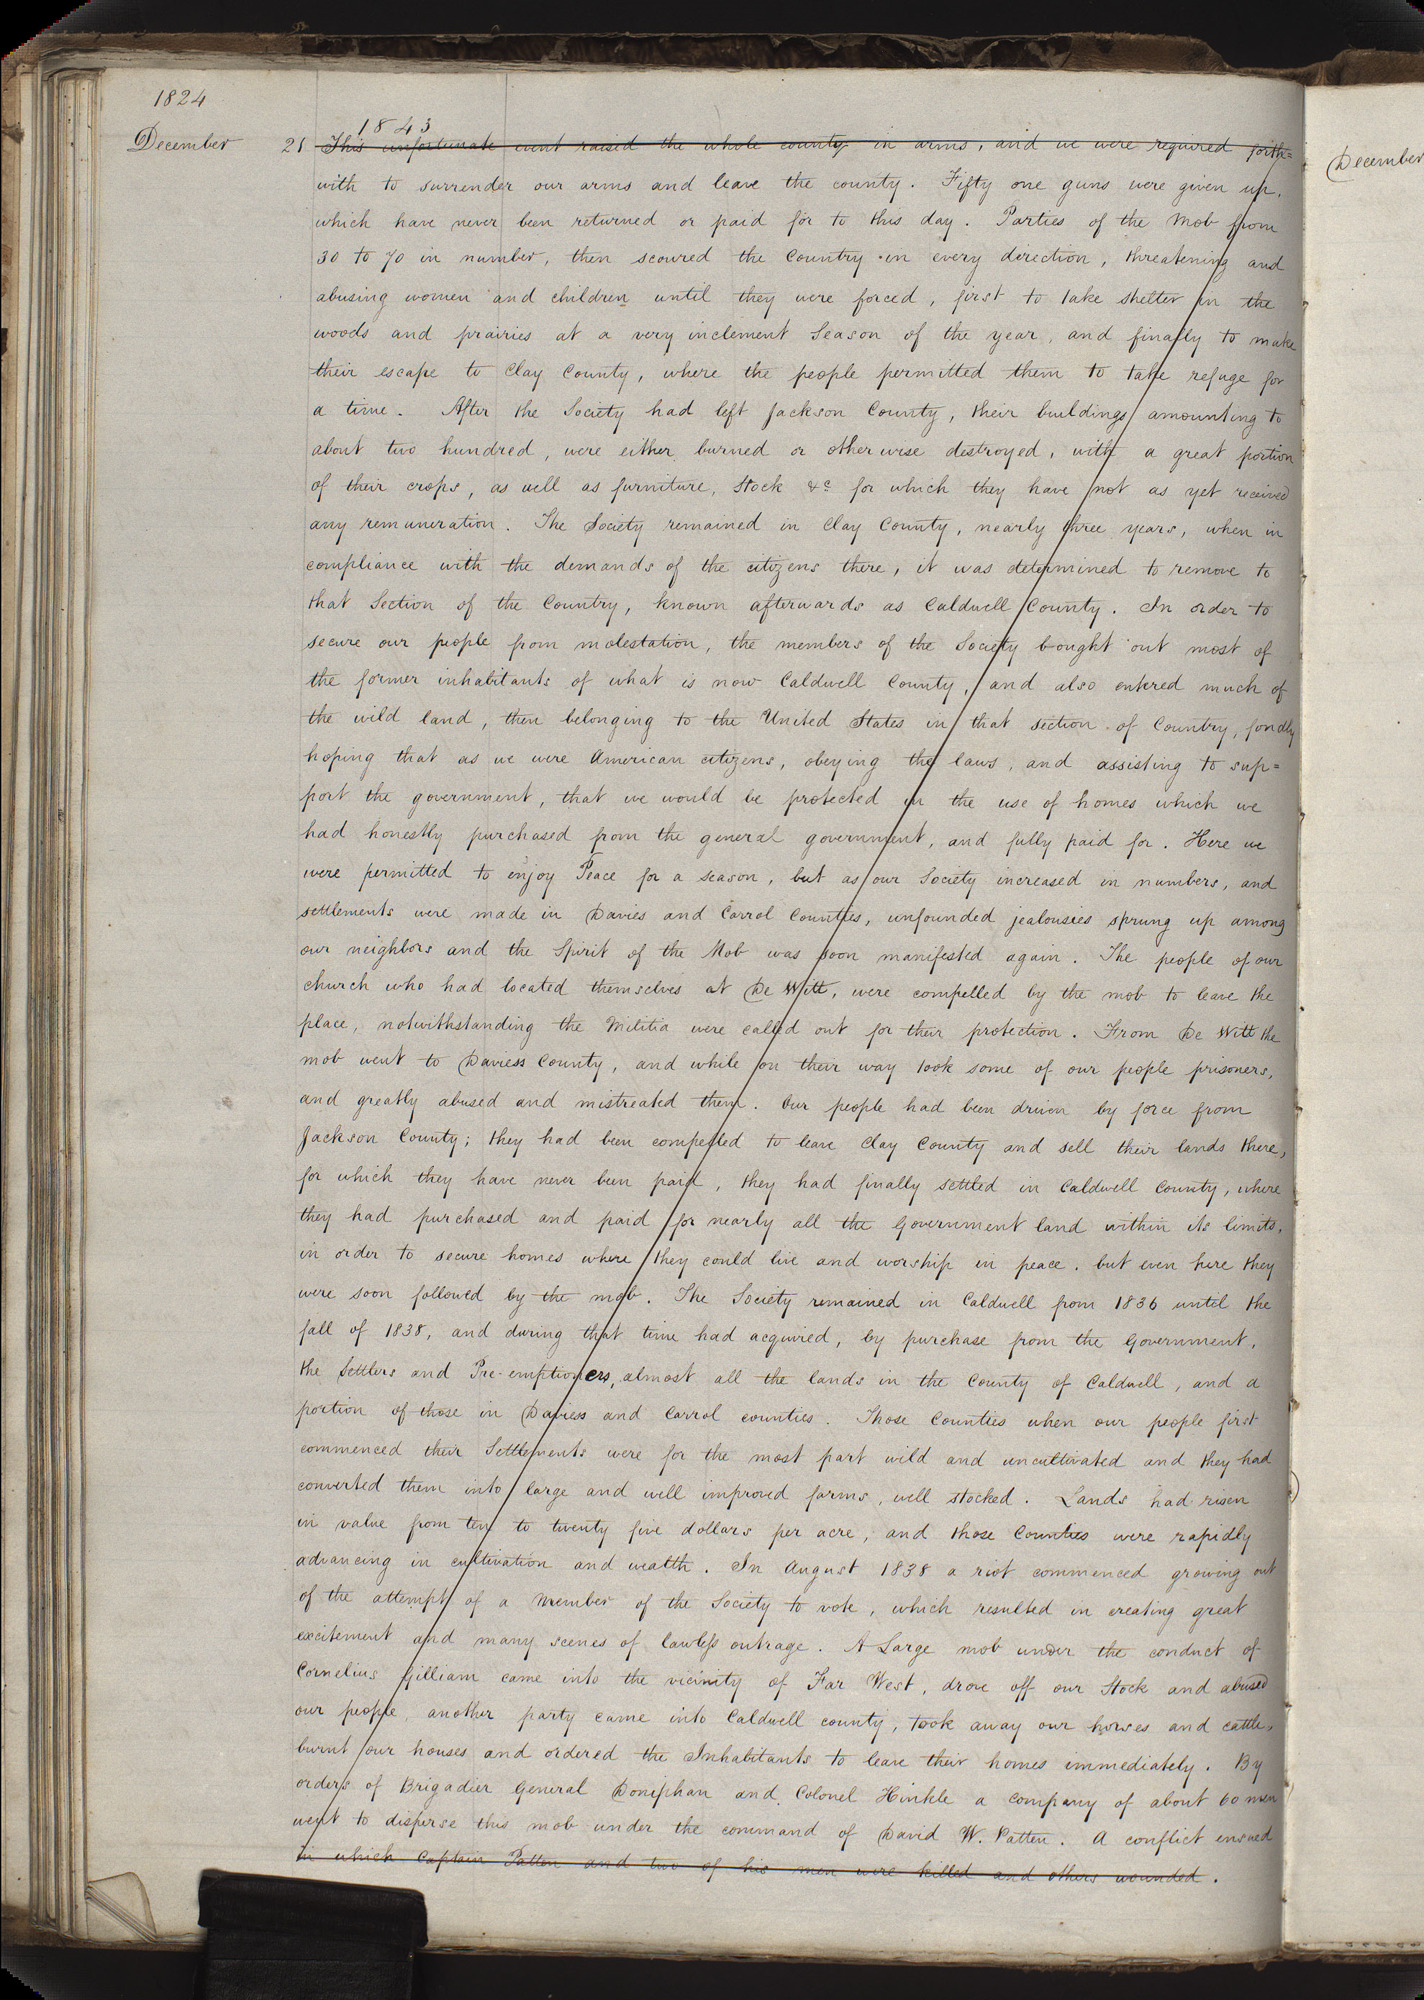 1824
1843
December 21 This unfortunate event raised the whole county in arms, and we were required forth=
with to surrender our arms and leave the county. Fifty one guns were given up,
which have never been returned or paid for to this day. Parties of the Mob from
30 to 70 in number, then scoured the Country in every direction, threatening and
abusing women and children until they were forced, first to take shelter in the
woods and prairies at a very inclement Season of the year, and finally to make
their escape to Clay County, where the people permitted them to take refuge for
a time. After the Society had left Jackson County, their buildings amounting to
about two hundred, were either burned or otherwise destroyed, with a great portion
of their crops, as well as furniture, Stock &c for which they have not as yet received
any remuneration. The Society remained in Clay County, nearly three years, when in
compliance with the demands of the citizens there, it was determined to remove to
that Section of the Country, known afterwards as Caldwell County. In order to
secure our people from molestation, the members of the Society bought out most of
the former inhabitants of what is now Caldwell County, and also entered much of
the wild land, then belonging to the United States in that section of Country, fondly
hoping that as we were American citizens, obeying the laws, and assisting to sup=
port the government, that we would be protected in the use of homes which we
had honestly purchased from the general government, and fully paid for. Here we
were permitted to enjoy Peace for a season, but as our Society increased in numbers, and
settlements were made in Davies and Carrol Counties, unfounded jealousies sprung up among
our neighbors and the Spirit of the Mob was soon manifested again. The people of our
church who had located themselves at De Witt, were compelled by the mob to leave the
place, notwithstanding the Militia were called out for their protection. From De Witt the
mob went to Daviess County, and while on their way took some of our people prisoners,
and greatly abused and mistreated them. Our people had been driven by force from
Jackson County; they had been compelled to leave Clay County and sell their lands there,
for which they have never been paid, they had finally settled in Caldwell County, where
they had purchased and paid for nearly all the Government land within its limits,
in order to secure homes where they could live and worship in peace, but even here they
were soon followed by the mob. The Society remained in Caldwell from 1836 until the
fall of 1838, and during that time had acquired, by purchase from the Government,
the Settlers and Pre-emptioners, almost all the lands in the County of Caldwell, and a
portion of those in Daviess and Carrol counties. Those Counties when our people first
commenced their Settlements were for the most part wild and uncultivated and they had
converted them into large and well improved farms, well stocked. Lands had risen
in value from ten to twenty five dollars per acre, and those Counties were rapidly
advancing in cultivation and wealth. In August 1838 a riot commenced growing out
of the attempt of a Member of the Society to vote, which resulted in creating great
excitement and many scenes of lawless outrage. A Large mob under the conduct of
Cornelius Gilliam came into the vicinity of Far West, drove off our Stock and abused
our people, another party came into Caldwell county, took away our horses and cattle,
burnt our houses and ordered the Inhabitants to leave their homes immediately. By
orders of Brigadier General Doniphan and Colonel Hinkle a company of about 60 men
went to disperse this mob under the command of David W. Patten. A conflict ensued
in which Captain Patten and two of his men were killed and others wounded.
December